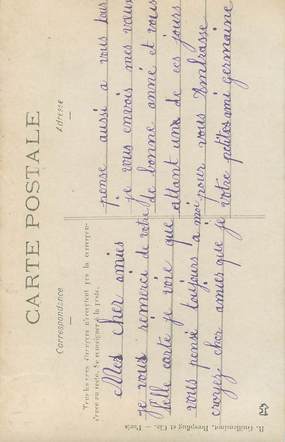 CARTE POSTALE
Correspondance
Adresse
Tous les pays étrangers n'acceptent pas la correspondance au recto. Se renseigner à la poste.
Mes cher amies
je vous remerci de votre
belle carte je voie que
vous pense toujours a moi
croyez cher amies que je
pense aussi a vous tous
je vous envois mes vœux
de bonne anné et vous
attant un de ces jours
pour vous Embrasse
votre petites ami germaine
H. Guilleminot, Bœspflug et Cie. — Paris